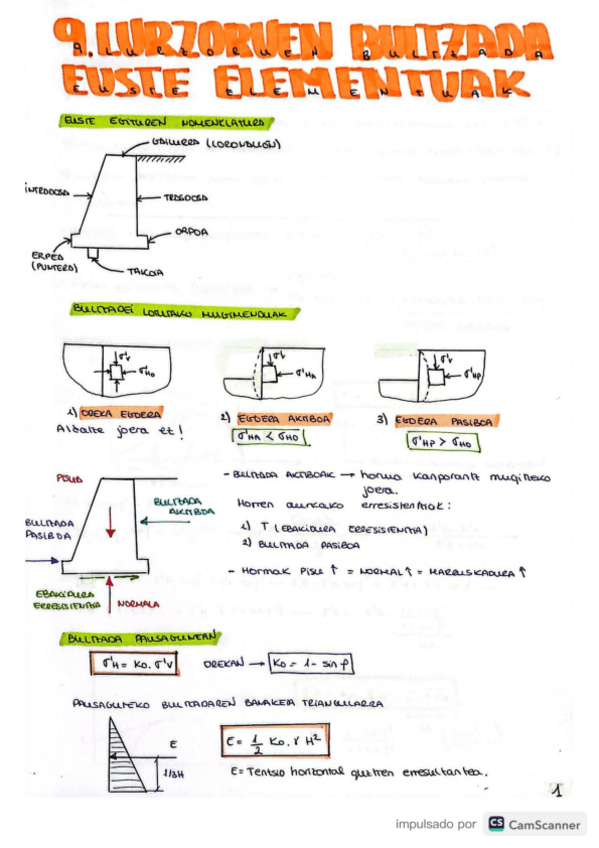 9. LURZORUEN BULTZADA
EUSTE ELEMENTUAK
EUSTE EGITUREN NOMENKLATURA
GAILURRA (CORONACIÓN)
INTRADOSA
TRASDOSA
ORPOA
ERPEA
(PUNTERA)
TAKOIA
BULTZADEI LOTUTAKO MUGIMENDUAK
σ'v
σ'Ho
σ'v
σ'HA
σ'v
σ'HP
1) OREKA EGOERA
Aldatze joera ez!
2) EGOERA AKTIBOA
σ'HA < σHO
3) EGOERA PASIBOA
σ'HP > σHO
PISUA
BULTZADA
AKTIBOA
BULTZADA
PASIBOA
EBAKIDURA
ERRESISTENTZIA
NORMALA
- BULTZADA AKTIBOAK → horma kanporantz mugitzeko
joera.
Horren aurkako erresistentziak:
1) T (EBAKIDURA ERRESISTENTZIA)
2) BULTZADA PASIBOA
- HORMAK PISU ↑ = NORMAL ↑ = MARRUSKADURA ↑
BULTZADA PAUSAGUNEAN
σ'H = Ko. σ'v
OREKAN → Ko = 1 - sin ρ
PAUSAGUNEKO BULTZADAREN BANAKETA TRIANGULARRA
E
1/3H
E = 1/2 Ko. γ H²
E = Tentsio horizontal guztien erresultantea.
1
impulsado por CS CamScanner